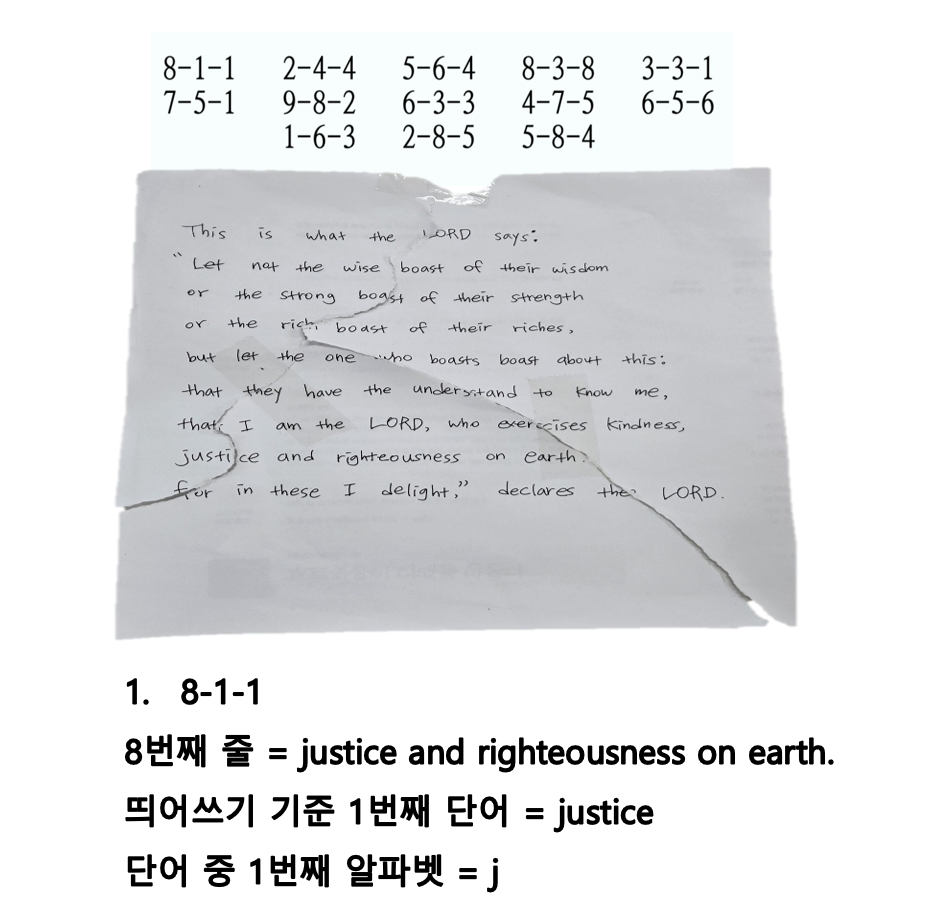 8-1-1 2-4-4 5-6-4 8-3-8 3-3-1
7-5-1 9-8-2 6-3-3 4-7-5 6-5-6
1-6-3 2-8-5 5-8-4
This is what the LORD says:
"Let not the wise boast of their wisdom
or the strong boast of their strength
or the rich boast of their riches,
but let the one who boasts boast about this:
that they have the understand to know me,
that I am the LORD, who exercises kindness,
justice and righteousness on earth.
for in these I delight," declares the LORD.
1. 8-1-1
8번째 줄 = justice and righteousness on earth.
띄어쓰기 기준 1번째 단어 = justice
단어 중 1번째 알파벳 = j